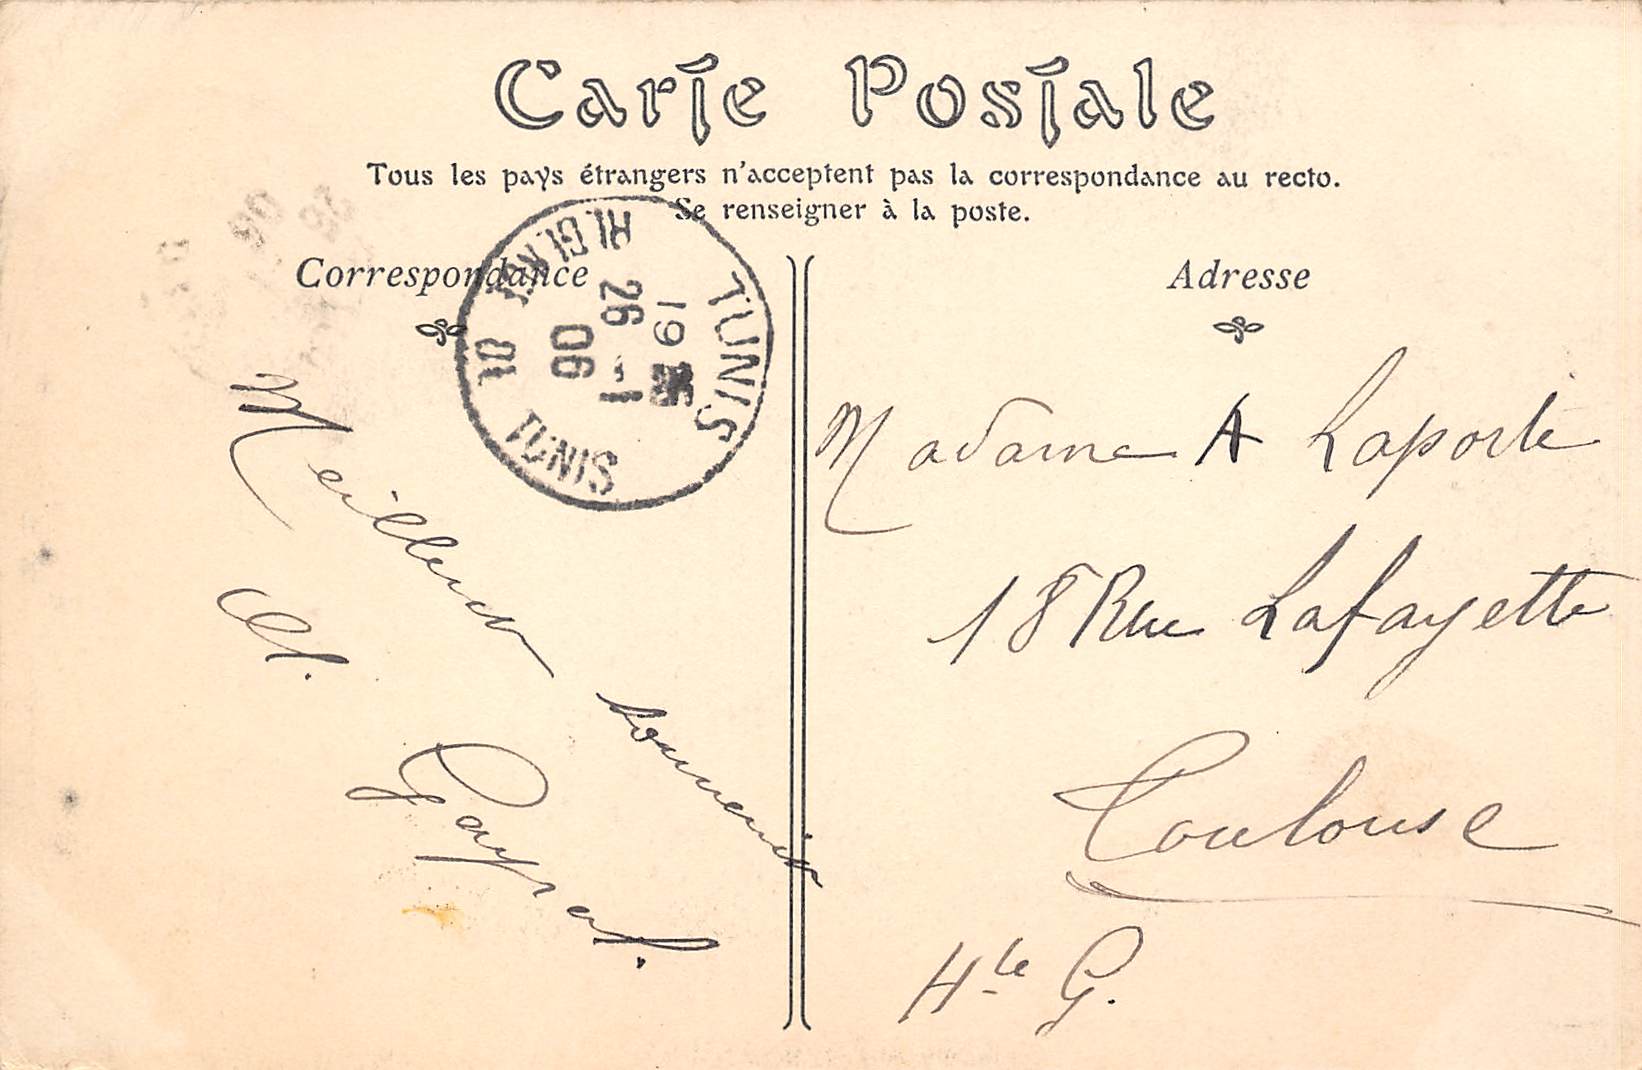 Carte Postale
Tous les pays étrangers n'acceptent pas la correspondance au recto.
Se renseigner à la poste.
Correspondance
Adresse
TUNIS
19
26 -1
06
TUNIS
Meilleur souvenir
M. Gayral.
Madame A Laporte
18 Rue Lafayette
Toulouse
Hte G.